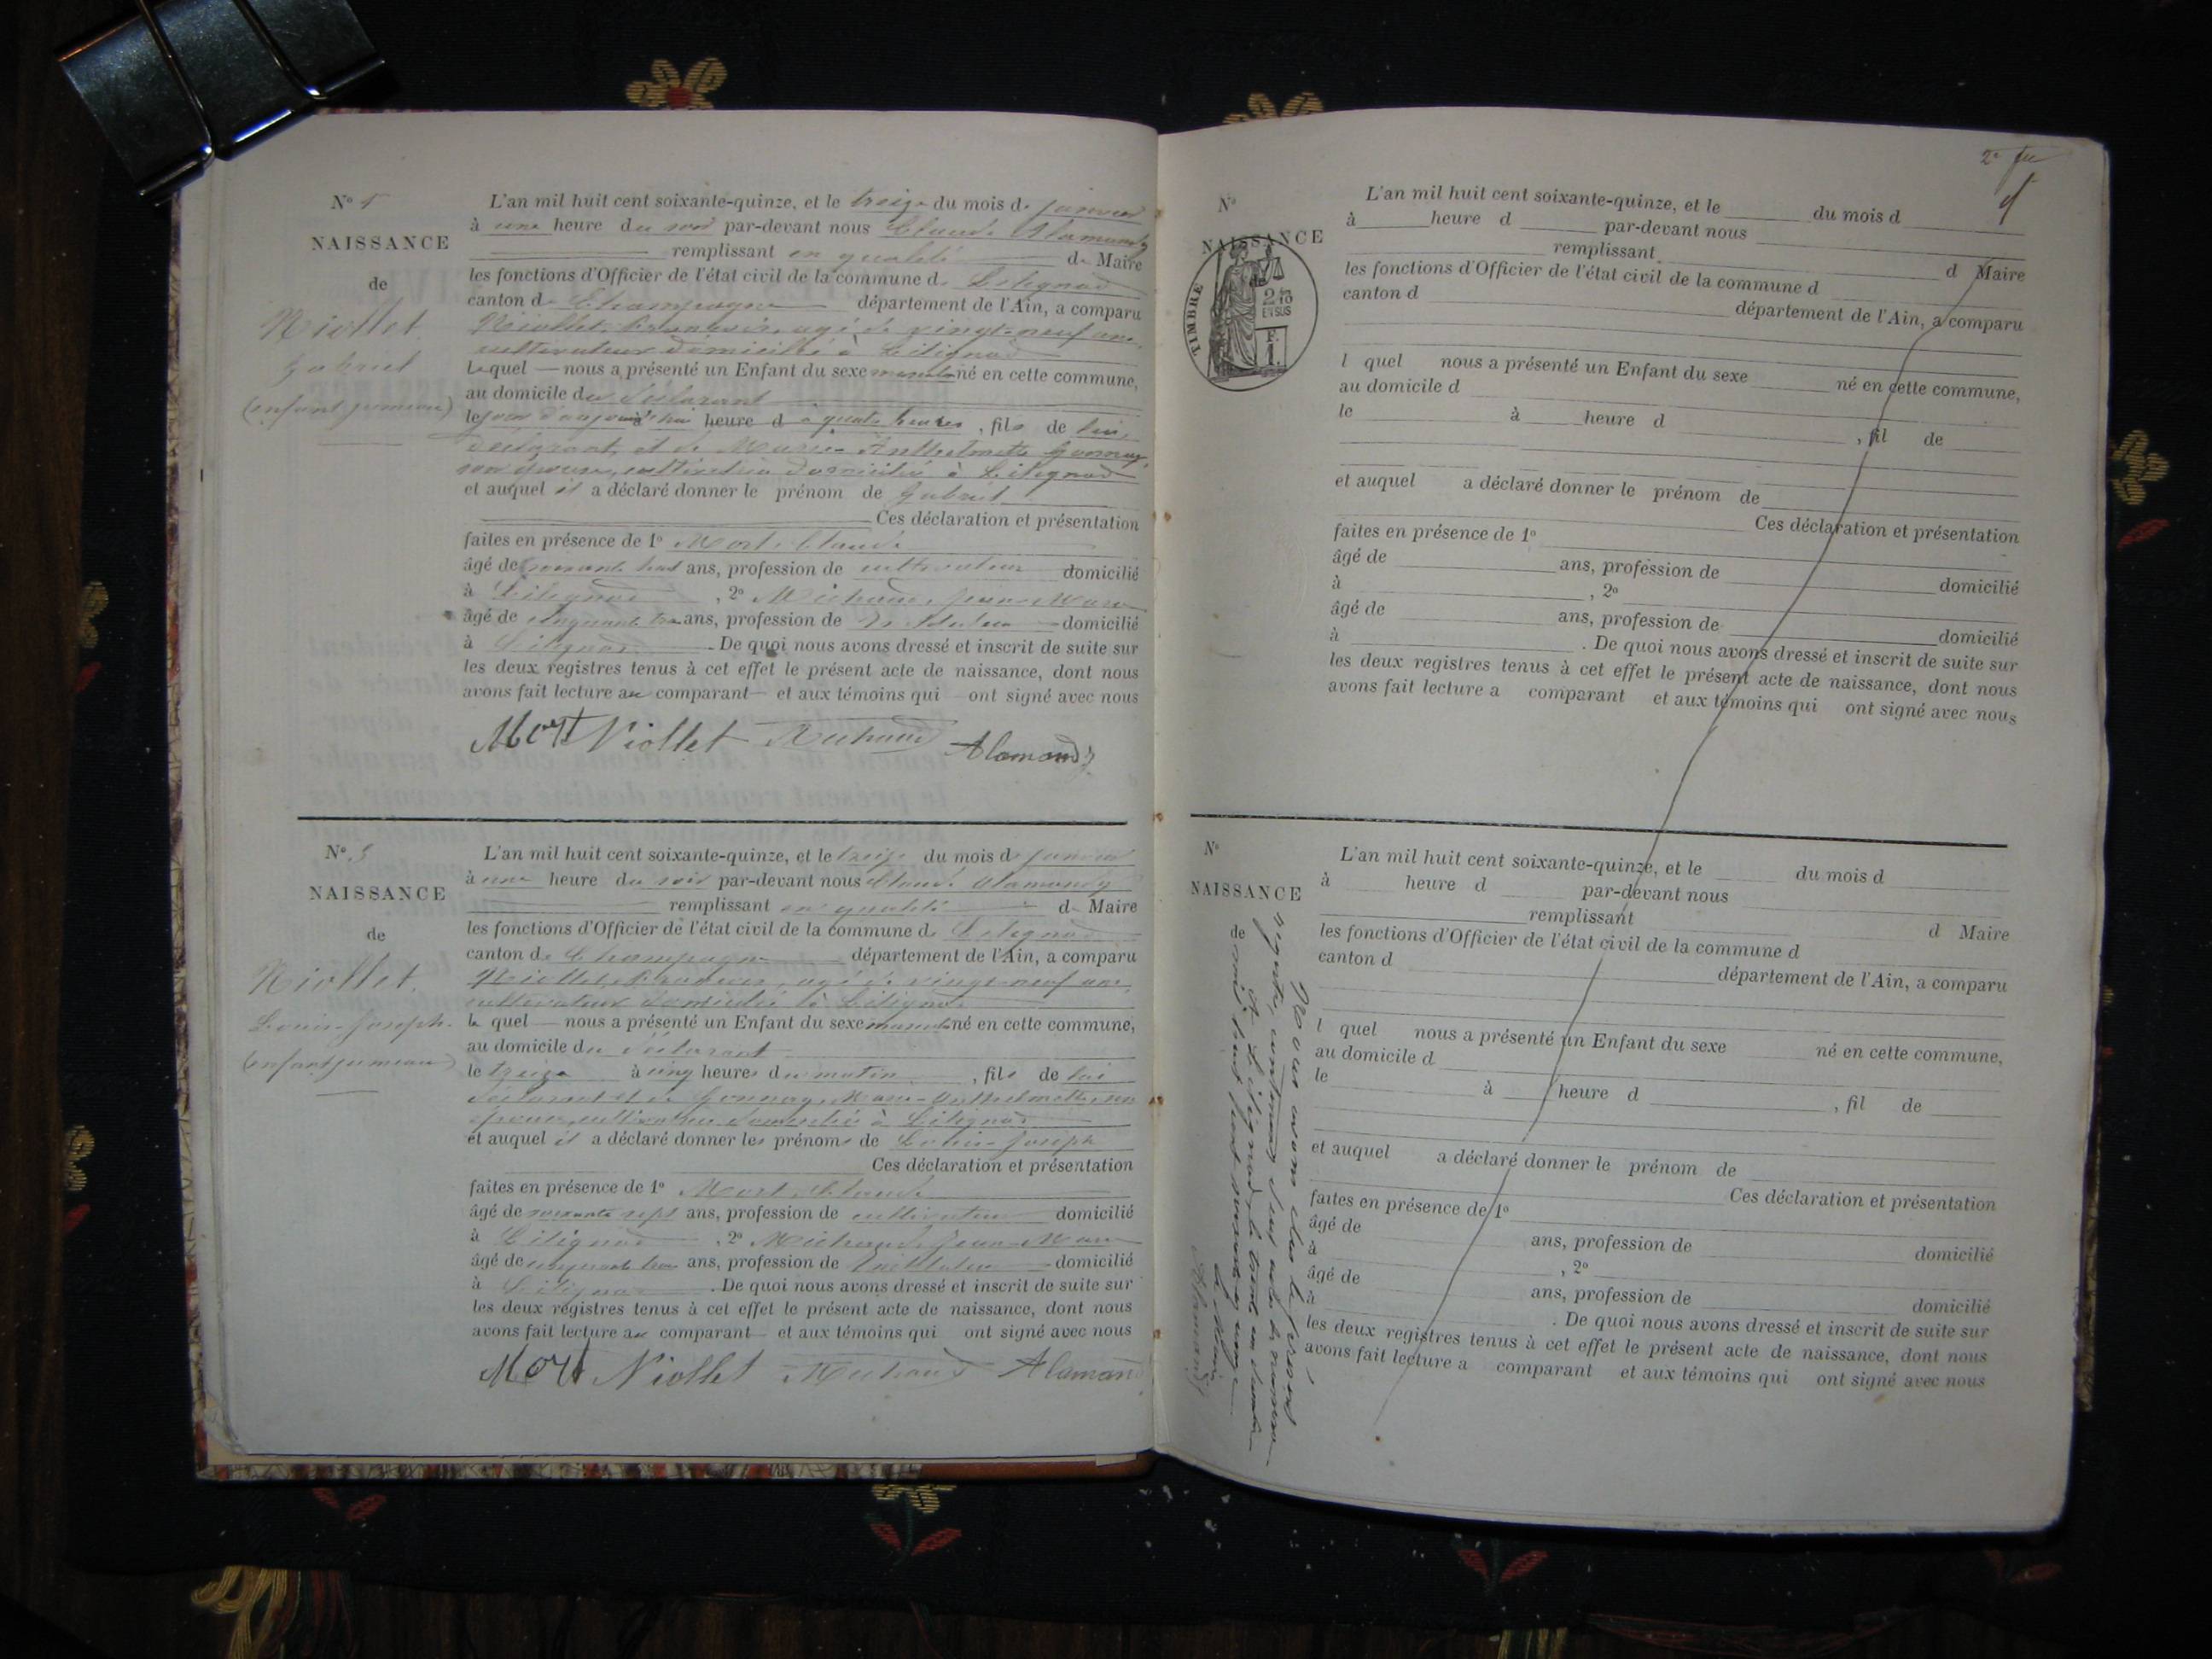 N°
NAISSANCE
de
Niollet
Gabriel
(enfant jumeau)
L'an mil huit cent soixante-quinze, et le treize du mois de janvier
à une heure du soir par-devant nous Claude Alamandy
remplissant en qualité de Maire
les fonctions d'Officier de l'état civil de la commune de Lilignod
canton de Champagne département de l'Ain, a comparu
Niollet, François, agé de vingt-neuf ans,
cultivateur domicilié à Lilignod
Lequel nous a présenté un Enfant du sexe masculin né en cette commune,
au domicile du déclarant
le jour d'aujourd'hui heure d à quatre heures, fils de lui,
déclarant, et de Marie-Anthelmette
son épouse, cultivatrice domiciliée à Lilignod
et auquel il a déclaré donner le prénom de Gabriel
Ces déclaration et présentation
faites en présence de 1° Mort, Claude
âgé de soixante ans, profession de cultivateur domicilié
à Lilignod, 2° Michaud, Jean-Marie
âgé de cinquante ans, profession de domicilié
à Lilignod. De quoi nous avons dressé et inscrit de suite sur
les deux registres tenus à cet effet le présent acte de naissance, dont nous
avons fait lecture au comparant et aux témoins qui ont signé avec nous
Mort Niollet Michaud Alamandy
N° 5
NAISSANCE
de
Niollet
Louis-Joseph.
(enfant jumeau)
L'an mil huit cent soixante-quinze, et le treize du mois de janvier
à une heure du soir par-devant nous Claude Alamandy
remplissant en qualité de Maire
les fonctions d'Officier de l'état civil de la commune de Lilignod
canton de Champagne département de l'Ain, a comparu
Niollet, François, agé de vingt-neuf ans,
cultivateur domicilié à Lilignod
le quel nous a présenté un Enfant du sexe masculin né en cette commune,
au domicile du déclarant
le treize à cinq heures du matin, fils de lui
déclarant et de Marie-Anthelmette, son
épouse, cultivatrice domiciliée à Lilignod
et auquel il a déclaré donner les prénoms de Louis-Joseph
Ces déclaration et présentation
faites en présence de 1° Mort, Claude
âgé de soixante sept ans, profession de cultivateur domicilié
à Lilignod, 2° Michaud, Jean-Marie
âgé de cinquante trois ans, profession de Instituteur domicilié
à Lilignod. De quoi nous avons dressé et inscrit de suite sur
les deux registres tenus à cet effet le présent acte de naissance, dont nous
avons fait lecture au comparant et aux témoins qui ont signé avec nous
Mort Niollet Michaud Alamand
2e
N°
NAISSANCE
TIMBRE
2/10
EN SUS
F.
1.
L'an mil huit cent soixante-quinze, et le du mois d
à heure d par-devant nous
remplissant d Maire
les fonctions d'Officier de l'état civil de la commune d
canton d département de l'Ain, a comparu
l quel nous a présenté un Enfant du sexe né en cette commune,
au domicile d
le à heure d , fil de
et auquel a déclaré donner le prénom de
Ces déclaration et présentation
faites en présence de 1°
âgé de ans, profession de domicilié
à , 2°
âgé de ans, profession de domicilié
à . De quoi nous avons dressé et inscrit de suite sur
les deux registres tenus à cet effet le présent acte de naissance, dont nous
avons fait lecture a comparant et aux témoins qui ont signé avec nous
N°
NAISSANCE
de
Nous avons clos le présent
registre, contenant
à Lilignod, le trente un décembre
mil huit cent soixante quinze
Le Maire
Alamandy
L'an mil huit cent soixante-quinze, et le du mois d
à heure d par-devant nous
remplissant d Maire
les fonctions d'Officier de l'état civil de la commune d
canton d département de l'Ain, a comparu
l quel nous a présenté un Enfant du sexe né en cette commune,
au domicile d
le à heure d , fil de
et auquel a déclaré donner le prénom de
Ces déclaration et présentation
faites en présence de 1°
âgé de ans, profession de domicilié
à , 2°
âgé de ans, profession de domicilié
à . De quoi nous avons dressé et inscrit de suite sur
les deux registres tenus à cet effet le présent acte de naissance, dont nous
avons fait lecture a comparant et aux témoins qui ont signé avec nous